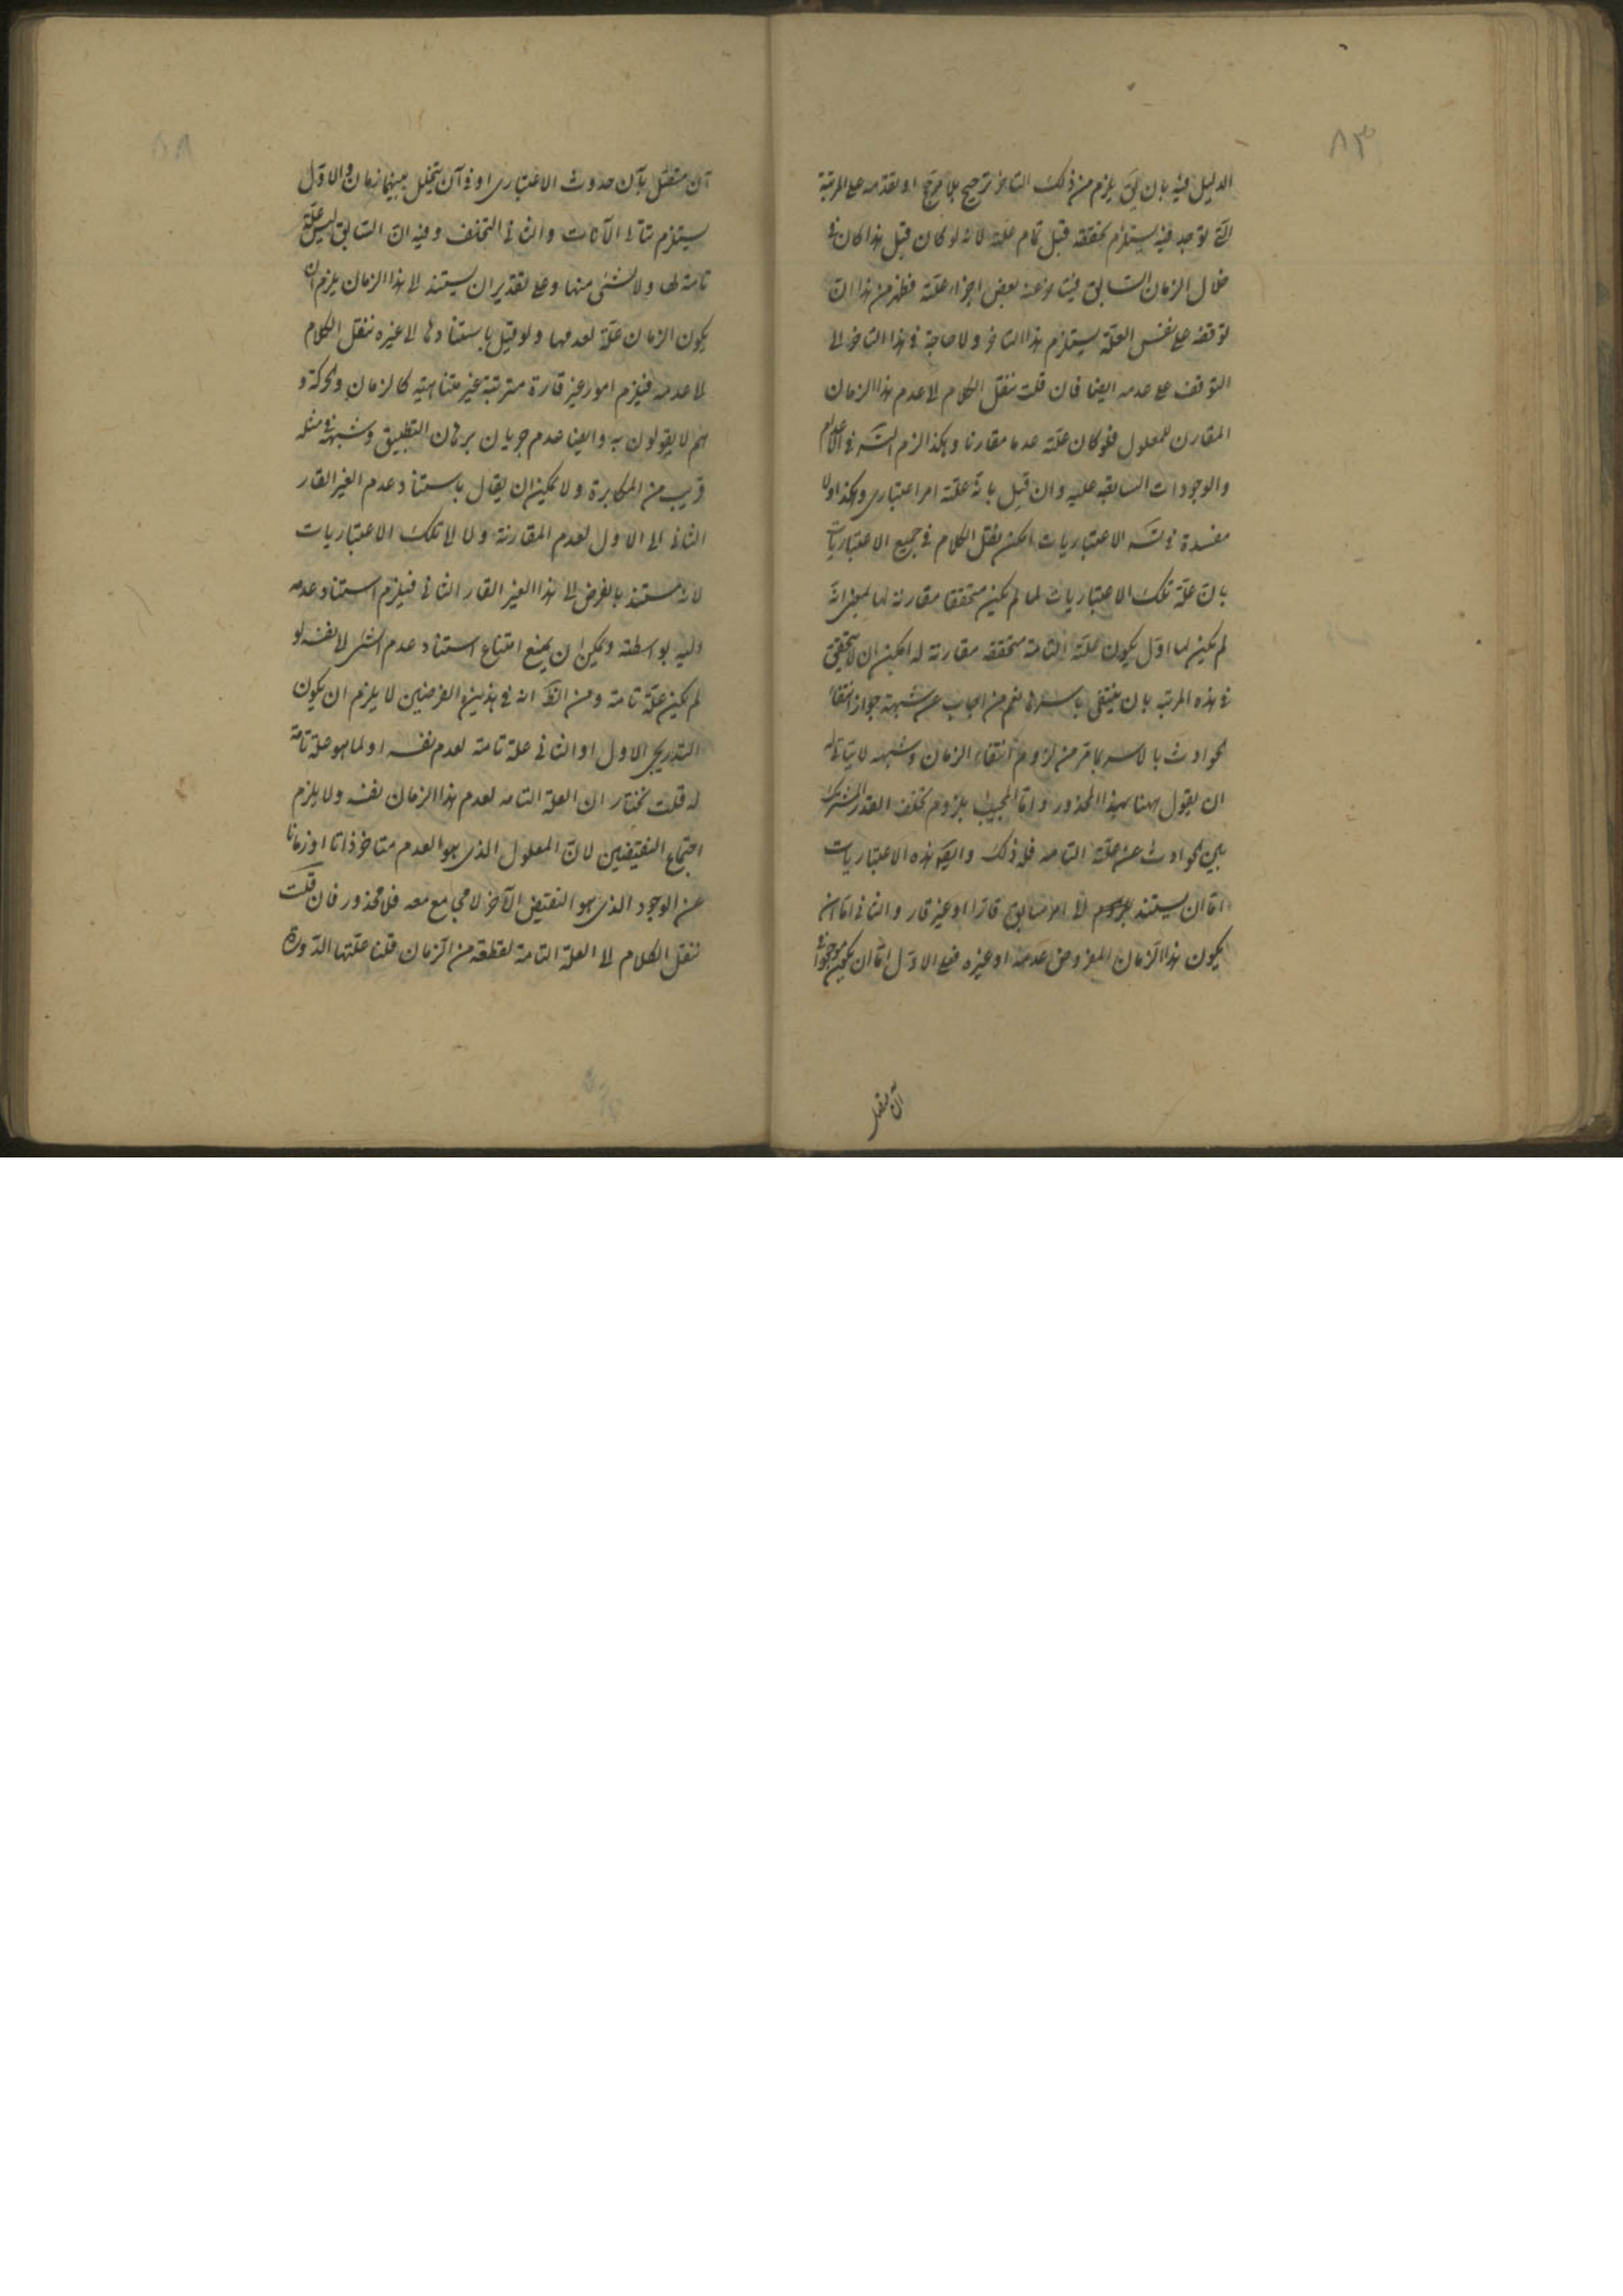 ٨٣
الدليل فيه بان يق يلزم من ذلك التاخر ترجيح بلا مرجح او تقدمه على المرتبة
التى توجد فيه يستلزم تحققه قبل تمام علته لانه لو كان قبل هذا كان فى
خلال الزمان السابق فيتاخر عنه بعض اجزاء علته فظهر من هذا ان
توقفه على نفس العلة يستلزم هذا التاخر ولا حاجة فى هذا التاخر الى
التوقف على عدمه ايضا فان قلت ننقل الكلام الى عدم هذا الزمان
المقارن للمعلول فلو كان علته عدما مقارنا وهكذا لزم التس فى الاعدام
والوجودات السابقه عليه وان قيل بانه علته امر اعتبارى وهكذا ولا
مفسدة فى تس الاعتباريات امكن نقل الكلام فى جميع الاعتباريات
بان علة تلك الاعتباريات لما لم يكن متحققا مقارنه لها بمعنى انه
لم يكن لما اول يكون علته التامة متحققه مقارنة له امكن ان لا يتحقق
فى هذه المرتبه بان ينتفى باسرها نعم من اجاب عن شبهة جواز انتفاء
الحوادث بالاسر بما مر من لزوم انتفاء الزمان وشبهه لا يتاتى له
ان يقول ههنا بهذا المحذور واما المجيب بلزوم تخلف القدر المشترك
بين الحوادث عن علته التامه فله ذلك وايض هذه الاعتباريات
اما ان يستند الى امر سابق قارا او غير قار والثانى اما ان
يكون هذا الزمان المفروض عدمه او غيره فعلى الاول اما ان يكون موجودا فى
آن متصل
آن متصل بآن حدوث الاعتبارى او فى آن يتخلل بينهما زمان والاول
يستلزم تتالى الآنات والثانى التخلف وفيه ان السابق ليس علة
تامة لها ولا لشئ منها وعلى تقدير ان يستند الى هذا الزمان يلزم ان
يكون الزمان علة لعدمها ولو قيل باستنادها الى غيره ننقل الكلام
الى عدمه فيلزم امور غير قارة مترتبة غير متناهية كالزمان والحركة و
هم لا يقولون به وايضا عدم جريان برهان التطبيق وشبهه فى مثله
قريب من المكابرة ولا يمكن ان يقال باستناد عدم الغير القار
الثانى الى الاول لعدم المقارنة ولا الى تلك الاعتباريات
لانه مستند بالفرض الى هذا الغير القار الثانى فيلزم استناد عدمه
اليه بواسطه ويمكن ان يمنع امتناع استناد عدم الشئ الى نفسه لو
لم يكن علة تامة ومن الظ انه فى هذين الفرضين لا يلزم ان يكون
التدريجى الاول او الثانى علة تامة لعدم نفسه او لما هو علة تامة
له قلت نختار ان العلة التامه لعدم هذا الزمان نفسه ولا يلزم
اجتماع النقيضين لان المعلول الذى هو العدم متاخر ذاتا او زمانا
عن الوجود الذى هو النقيض الآخر لا مجامع معه فلا محذور فان قلت
ننقل الكلام الى العلة التامة لقطعة من الزمان قلنا علتها الدورة